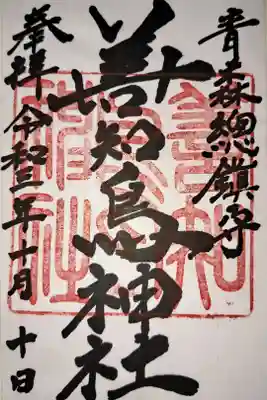 青森總鎮守
善知鳥神社
奉拝 令和三年十月十日